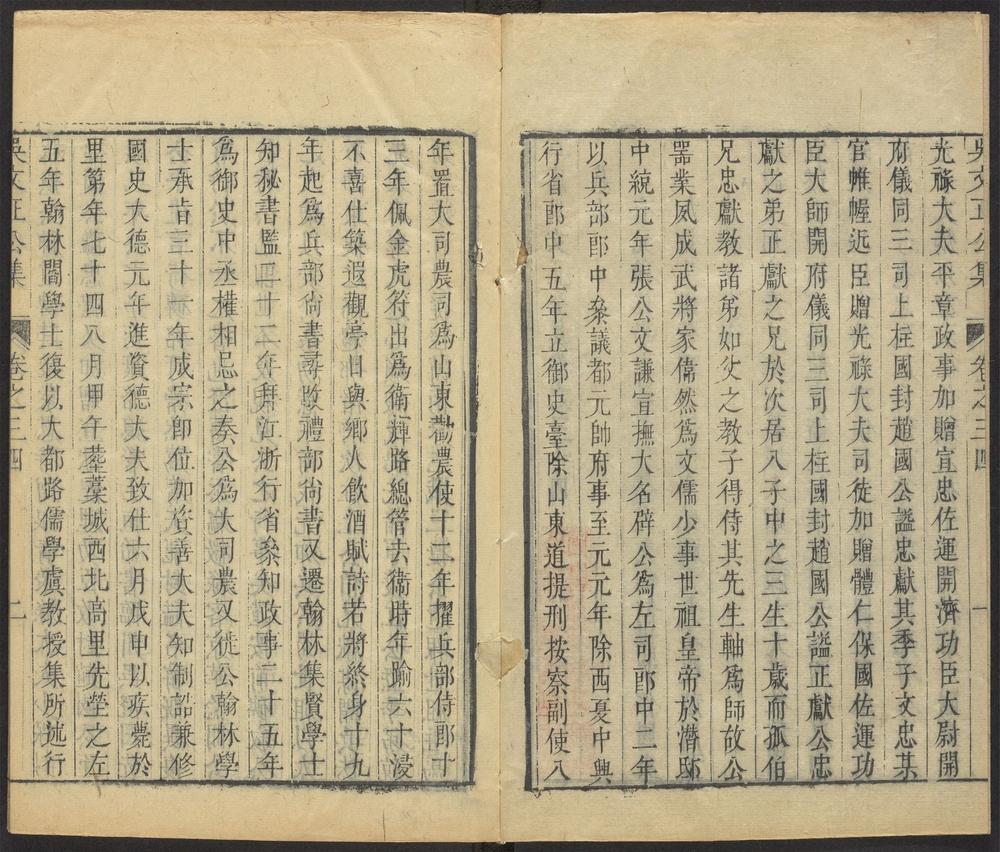 吳文正公集 卷之三四 一
光祿大夫平章政事加贈宣忠佐運開濟功臣大尉開
府儀同三司上柱國封趙國公諡忠獻其季子文忠某
官帷幄近臣贈光祿大夫司徒加贈體仁保國佐運功
臣大師開府儀同三司上柱國封趙國公諡正獻公忠
獻之弟正獻之兄於次居八子中之三生十歲而孤伯
兄忠獻教諸弟如父之教子得侍其先生軸爲師故公
器業夙成武將家偉然爲文儒少事世祖皇帝於潛邸
中統元年張公文謙宣撫大名辟公爲左司郎中二年
以兵部郎中叅議都元帥府事至元元年除西夏中興
行省郎中五年立御史臺除山東道提刑按察副使八
年置大司農司爲山東勸農使十二年擢兵部侍郎十
三年佩金虎符出爲衛輝路總管去衞時年踰六十浸
不喜仕築遐觀亭日與鄉人飲酒賦詩若將終身十九
年起爲兵部尚書尋改禮部尚書又遷翰林集賢學士
知秘書監二十二年拜江浙行省叅知政事二十五年
爲御史中丞權相忌之奏公爲大司農又徙公翰林學
士承旨三十一年成宗卽位加資善大夫知制誥兼修
國史大德元年進資德大夫致仕六月戊申以疾薨於
里第年七十四八月甲午塟藁城西北高里先塋之左
五年翰林閻學士復以大都路儒學虞教授集所述行
吳文正公集 卷之三四 二